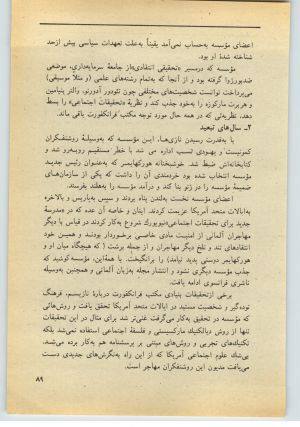 اعضای مؤسسه به‌حساب نمی‌آمد یقیناً به‌علت تعهدات سیاسی بیش ازحد
شناخته شدهٔ او بود.
مؤسسه که درمسیر «تحقیقی انتقادی»از جامعهٔ سرمایه‌داری، موضعی
ضدبورژوا گرفته بود و از آنجا که به‌تمام رشته‌های علمی (و مثلا موسیقی)
می‌پرداخت توانست شخصیت‌های مختلفی چون تئودور آدورنو، والتر بنیامین
و هربرت مارکوزه را به‌خود جذب کند و نظریهٔ «تحقیقات اجتماعی» را بسط
دهد. نظریه‌ئی که در همه حال مورد توجه مکتب فرانکفورت باقی ماند.
۲ـ سال‌های تبعید
با به‌قدرت رسیدن نازی‌ها، این مؤسسه که به‌وسیلهٔ روشنفکران
کمونیست و یهودی نسب اداره می شد با خطر مستقیم روبه‌رو شد و
کتابخانه‌اش ضبط شد. خوشبختانه هورکهایمر که به‌عنوان رئیس جدید
مؤسسه انتخاب شده بود خردمندی آن را داشت که یکی از سازمان‌های
ضمیمهٔ مؤسسه را در ژنو بنا کند و درآمد مؤسسه را به‌هلند بفرستد.
اعضای مؤسسه نخست به‌لندن پناه بردند و سپس به‌پاریس و بالاخره
به‌ایالات متحد آمریکا عزیمت کردند. اینان و خاصه آن عده که در «مدرسهٔ
جدید برای تحقیقات اجتماعی»نیویورک شروع به‌کار کردند در قیاس با دیگر
مهاجران آلمانی از امنیت مادی خاصی برخوردار بودنـد و همین خود
انتقادهای تند و تلخ دیگر مهاجران و از جمله برشت ( که هیچگاه میان او و
هورکهایمر دوستی پدید نیامد) را برانگیخت. با همهٔاین، مؤسسه‌کوشید که
جذب مؤسسه دیگری نشود و انتشار مجله به‌زبان آلمانی و همچنین به‌وسیله
ناشری فرانسوی ادامه یافت.
برخی ازتحقیقات بنیادی مکتب فرانکفورت دربارهٔ نازیسم، فرهنگ
توده‌گیر و شخصیت مستبد در ایالات متحد آمریکا تحقق یافت و روش‌هائی
که مؤسسه در تحقیق به‌کار می‌گرفت غنی‌تر شد برای مثال در این تحقیقات
تنها از روش دیالکتیک مارکسیستی و فلسفهٔ اجتماعی استفاده نمی‌شد بلکه
تکنیک‌های تجربی و روش‌های مبتنی بر پرسشنامه هم به‌کار برده می‌شـد.
بی‌شك علوم اجتماعی آمریکا که از این راه به‌نگرش‌های جدیدی دست
می‌یافت مدیون این روشنفکران مهاجر است.
۸۹